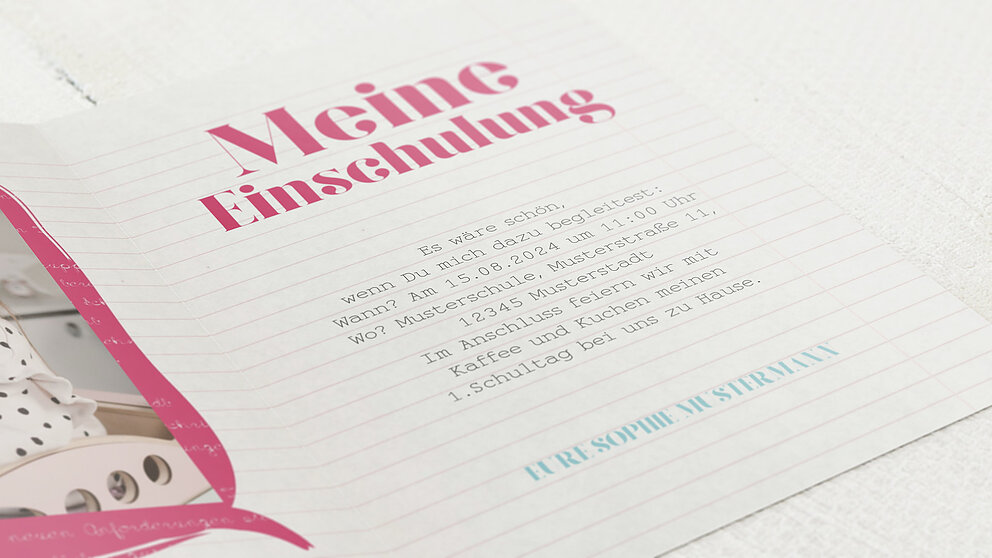 Meine
Einschulung
Es wäre schön,
wenn Du mich dazu begleitest:
Wann? Am 15.08.2024 um 11:00 Uhr
Wo? Musterschule, Musterstraße 11,
12345 Musterstadt
Im Anschluss feiern wir mit
Kaffee und Kuchen meinen
1.Schultag bei uns zu Hause.
EURE SOPHIE MUSTERMANN
neuen Anforderungen